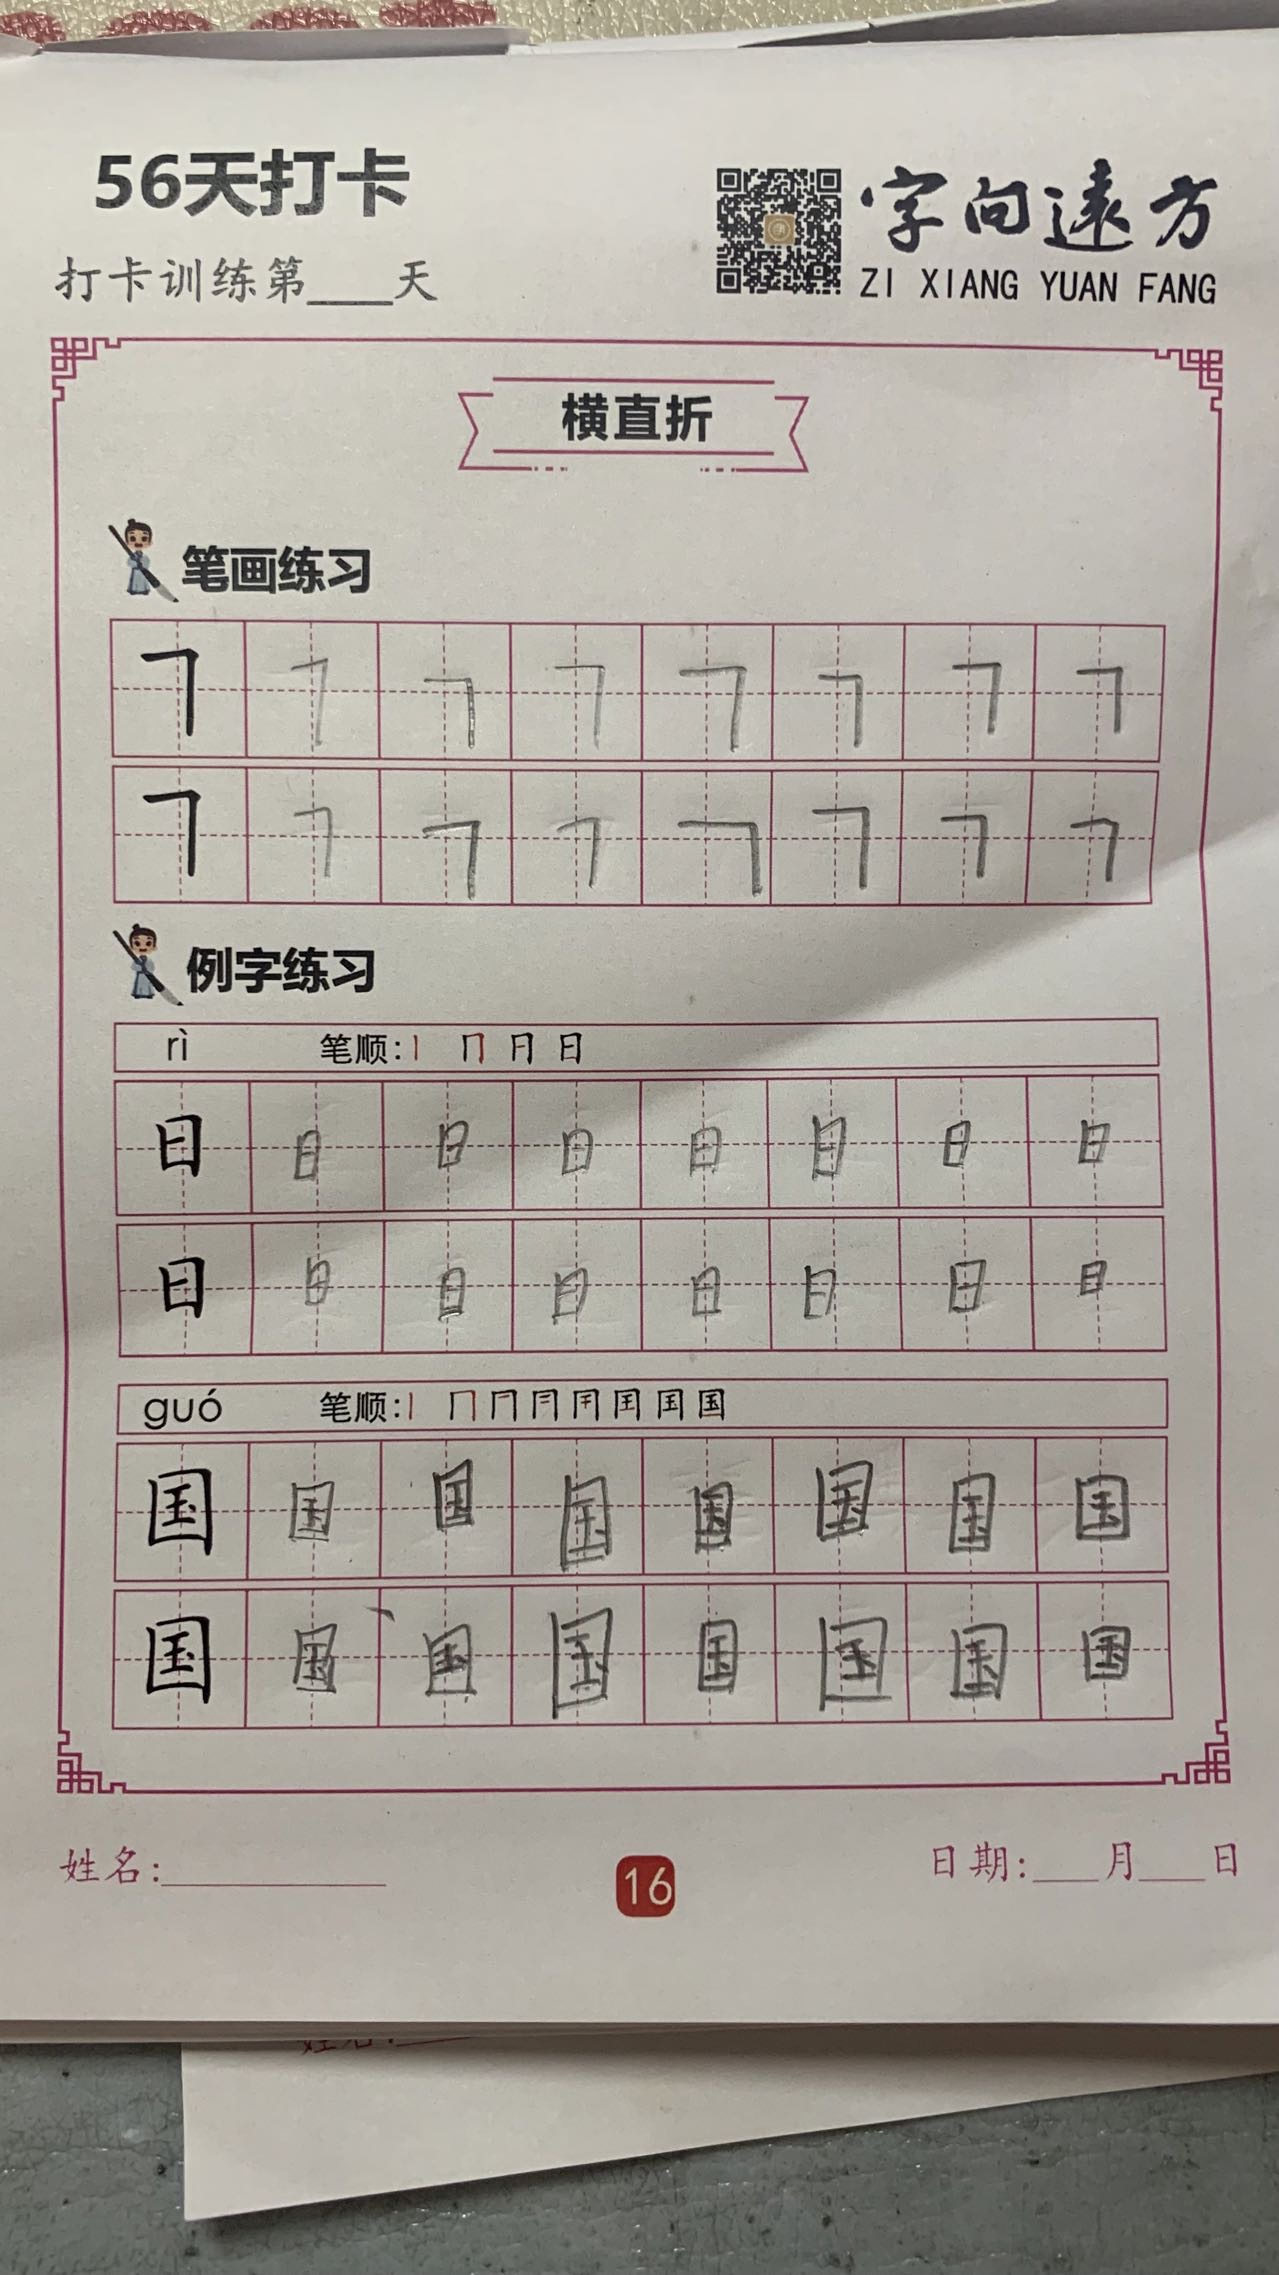 56天打卡
字向遠方
打卡训练第____天
ZI XIANG YUAN FANG
横直折
笔画练习
𠃍 𠃍 𠃍 𠃍 𠃍 𠃍 𠃍 𠃍
𠃍 𠃍 𠃍 𠃍 𠃍 𠃍 𠃍 𠃍
例字练习
rì 笔顺:丨 冂 日 日
日 日 日 日 日 日 日 日
日 日 日 日 日 日 日 日
guó 笔顺: 国
国 国 国 国 国 国 国 国
国 国 国 国 国 国 国 国
姓名:________ 16 日期:___月___日